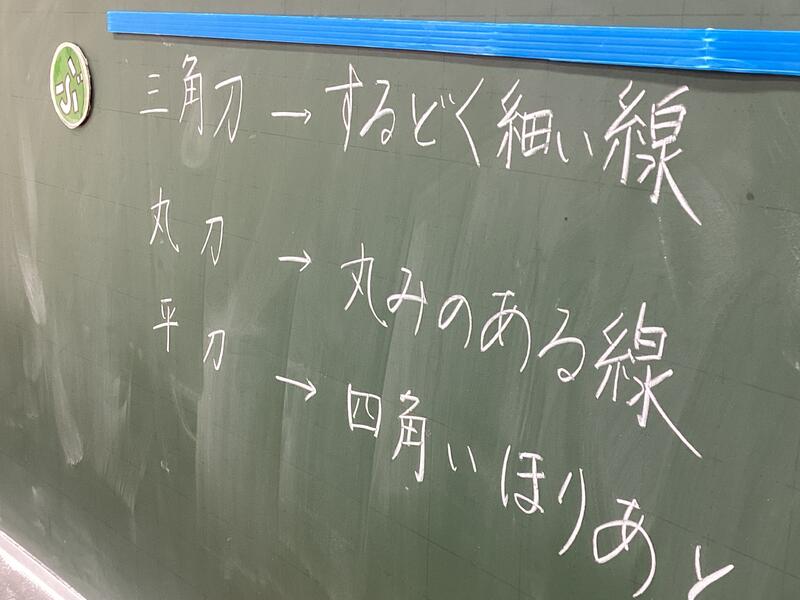 ぶ
三角刀→するどく細い線
丸刀→丸みのある線
平刀→四角いほりあと